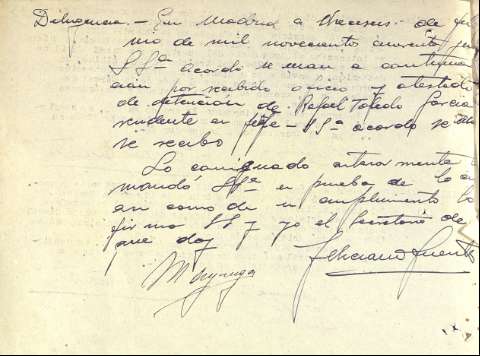 Diligencia.- En Madrid a dieciseis de ju
nio de mil novecientos cuarenta y
SSª acordó se unan a continua
ción por recibido oficio y atestado
de detención de Rafael Toledo Garcia
residente en jefe - SSª acordó se
se recibo
Lo consignado anteriormente
mandó SSª en prueba de lo
en como de su cumplimiento lo
firma SS y yo el Secretario de
que doy
Feliciano Fuent